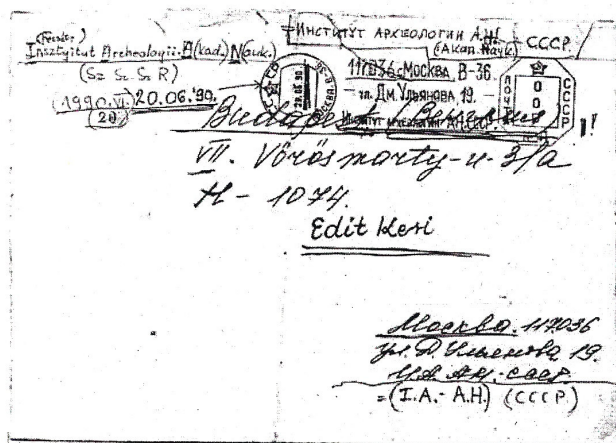 (Feladó)
Insztyitut Archeologii. A(kad.) N(auk.)
(Sz. Sz. Sz. R)
(1990. VI. 20.) 20.06.'90.
ИНСТИТУТ АРХЕОЛОГИИ А.Н!
(Акад. Наук.)
СССР.
117036 Москва, В-36
ул. Дм. Ульянова, 19.
Институт археологии АН СССР
ПОЧТА СССР
00
СССР
МОСКВА В-36
20.06.90
Budapest
VII. Vörösmarty-u-3/a
H-1074.
Edit Keri
Москва. 117036
ул. Д. Ульянова. 19.
И.А. АН. СССР.
=(I.A.-A.H.) (CCCP.)